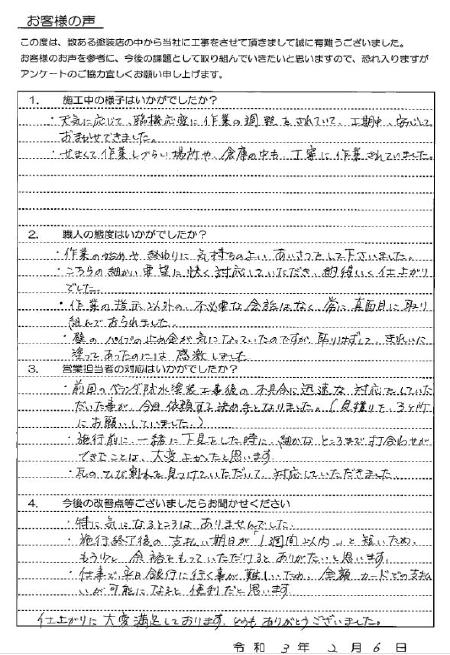 お客様の声
この度は、数ある塗装店の中から当社に工事をさせて頂きまして誠に有難うございました。
お客様のお声を参考に、今後の課題として取り組んでいきたいと思いますので、恐れ入りますが
アンケートのご協力宜しくお願い申し上げます。
1. 施工中の様子はいかがでしたか？
・天気に応じて、臨機応変に作業の調整をされていて、工期中、安心して
おまかせできました。
・せまくて作業しづらい場所や、倉庫の中も、丁寧に作業されていました。
2. 職人の態度はいかがでしたか？
・作業の始めや終わりに気持ちのよいあいさつをして下さいました。
・こちらの細かい要望に快く対応していただき、納得いく仕上がり
でした。
・作業の指示以外の、不必要な会話はなく、常に真面目に取り
組んでおられました。
・壁のパイプの止め金が気になっていたのですが、取りはずして、きれいに
塗ってあったのには感激しました
3. 営業担当者の対応はいかがでしたか？
・前回のベランダ防水塗装工事後の不具合に迅速な対応をしていた
だいた事が、今回依頼する決め手となりました。（見積りを、3ヶ所
にお願いしていました。）
・施行前に、一緒に下見をした時に、細かなところまで打合わせが
できたことは、大変よかったと思います
・瓦のひび割れを見つけていただいて、対応していただきました。
4. 今後の改善点等ございましたらお聞かせください
・特に気になるところはありませんでした。
・施行終了後の支払い期日が「1週間以内」と短いため、
もう少し余裕をもっていただけるとありがたいと思います。
・仕事で平日銀行に行く事が難しいため、全額カードでの支払
いが可能になると便利だと思います
仕上がりに大変満足しております。どうもありがとうございました。
令和3年2月6日